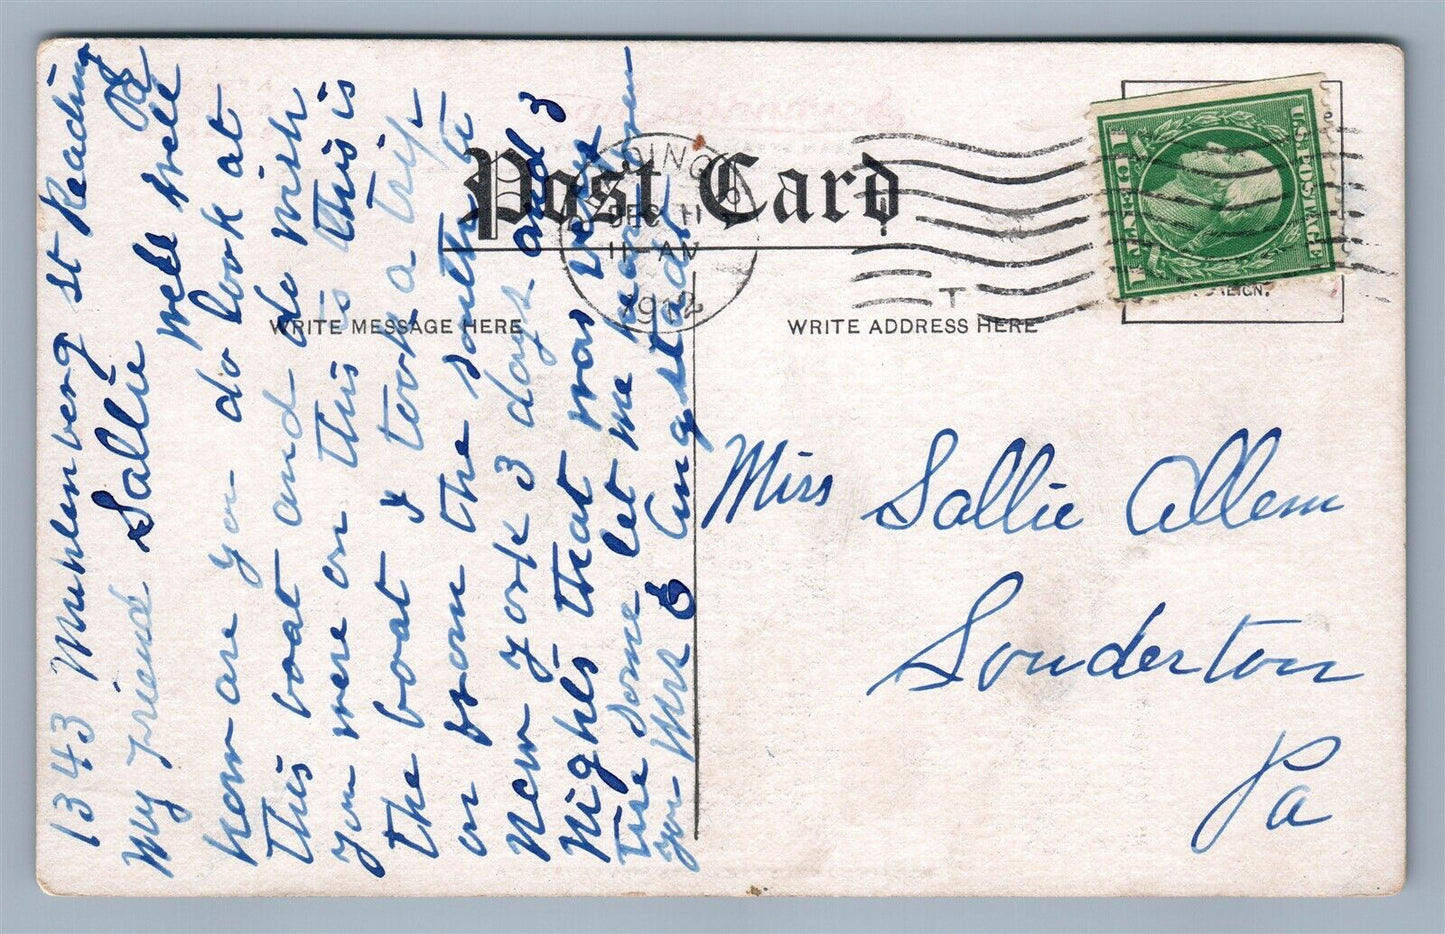 1343 Muhlenberg st Reading
Pa
My Friend Sallie well well
how are you do look at
this boat and do wish
you were on this is this is
the boat I took a trip
on down the south to
New york 3 days and 3
Nights that was
Time some let me hear
you Mrs E Angstadt
Post Card
READING
DEC 11
11-AM
1912
WRITE MESSAGE HERE
WRITE ADDRESS HERE
U.S. POSTAGE
1 CENT 1
Miss Sallie Allem
Souderton
Pa